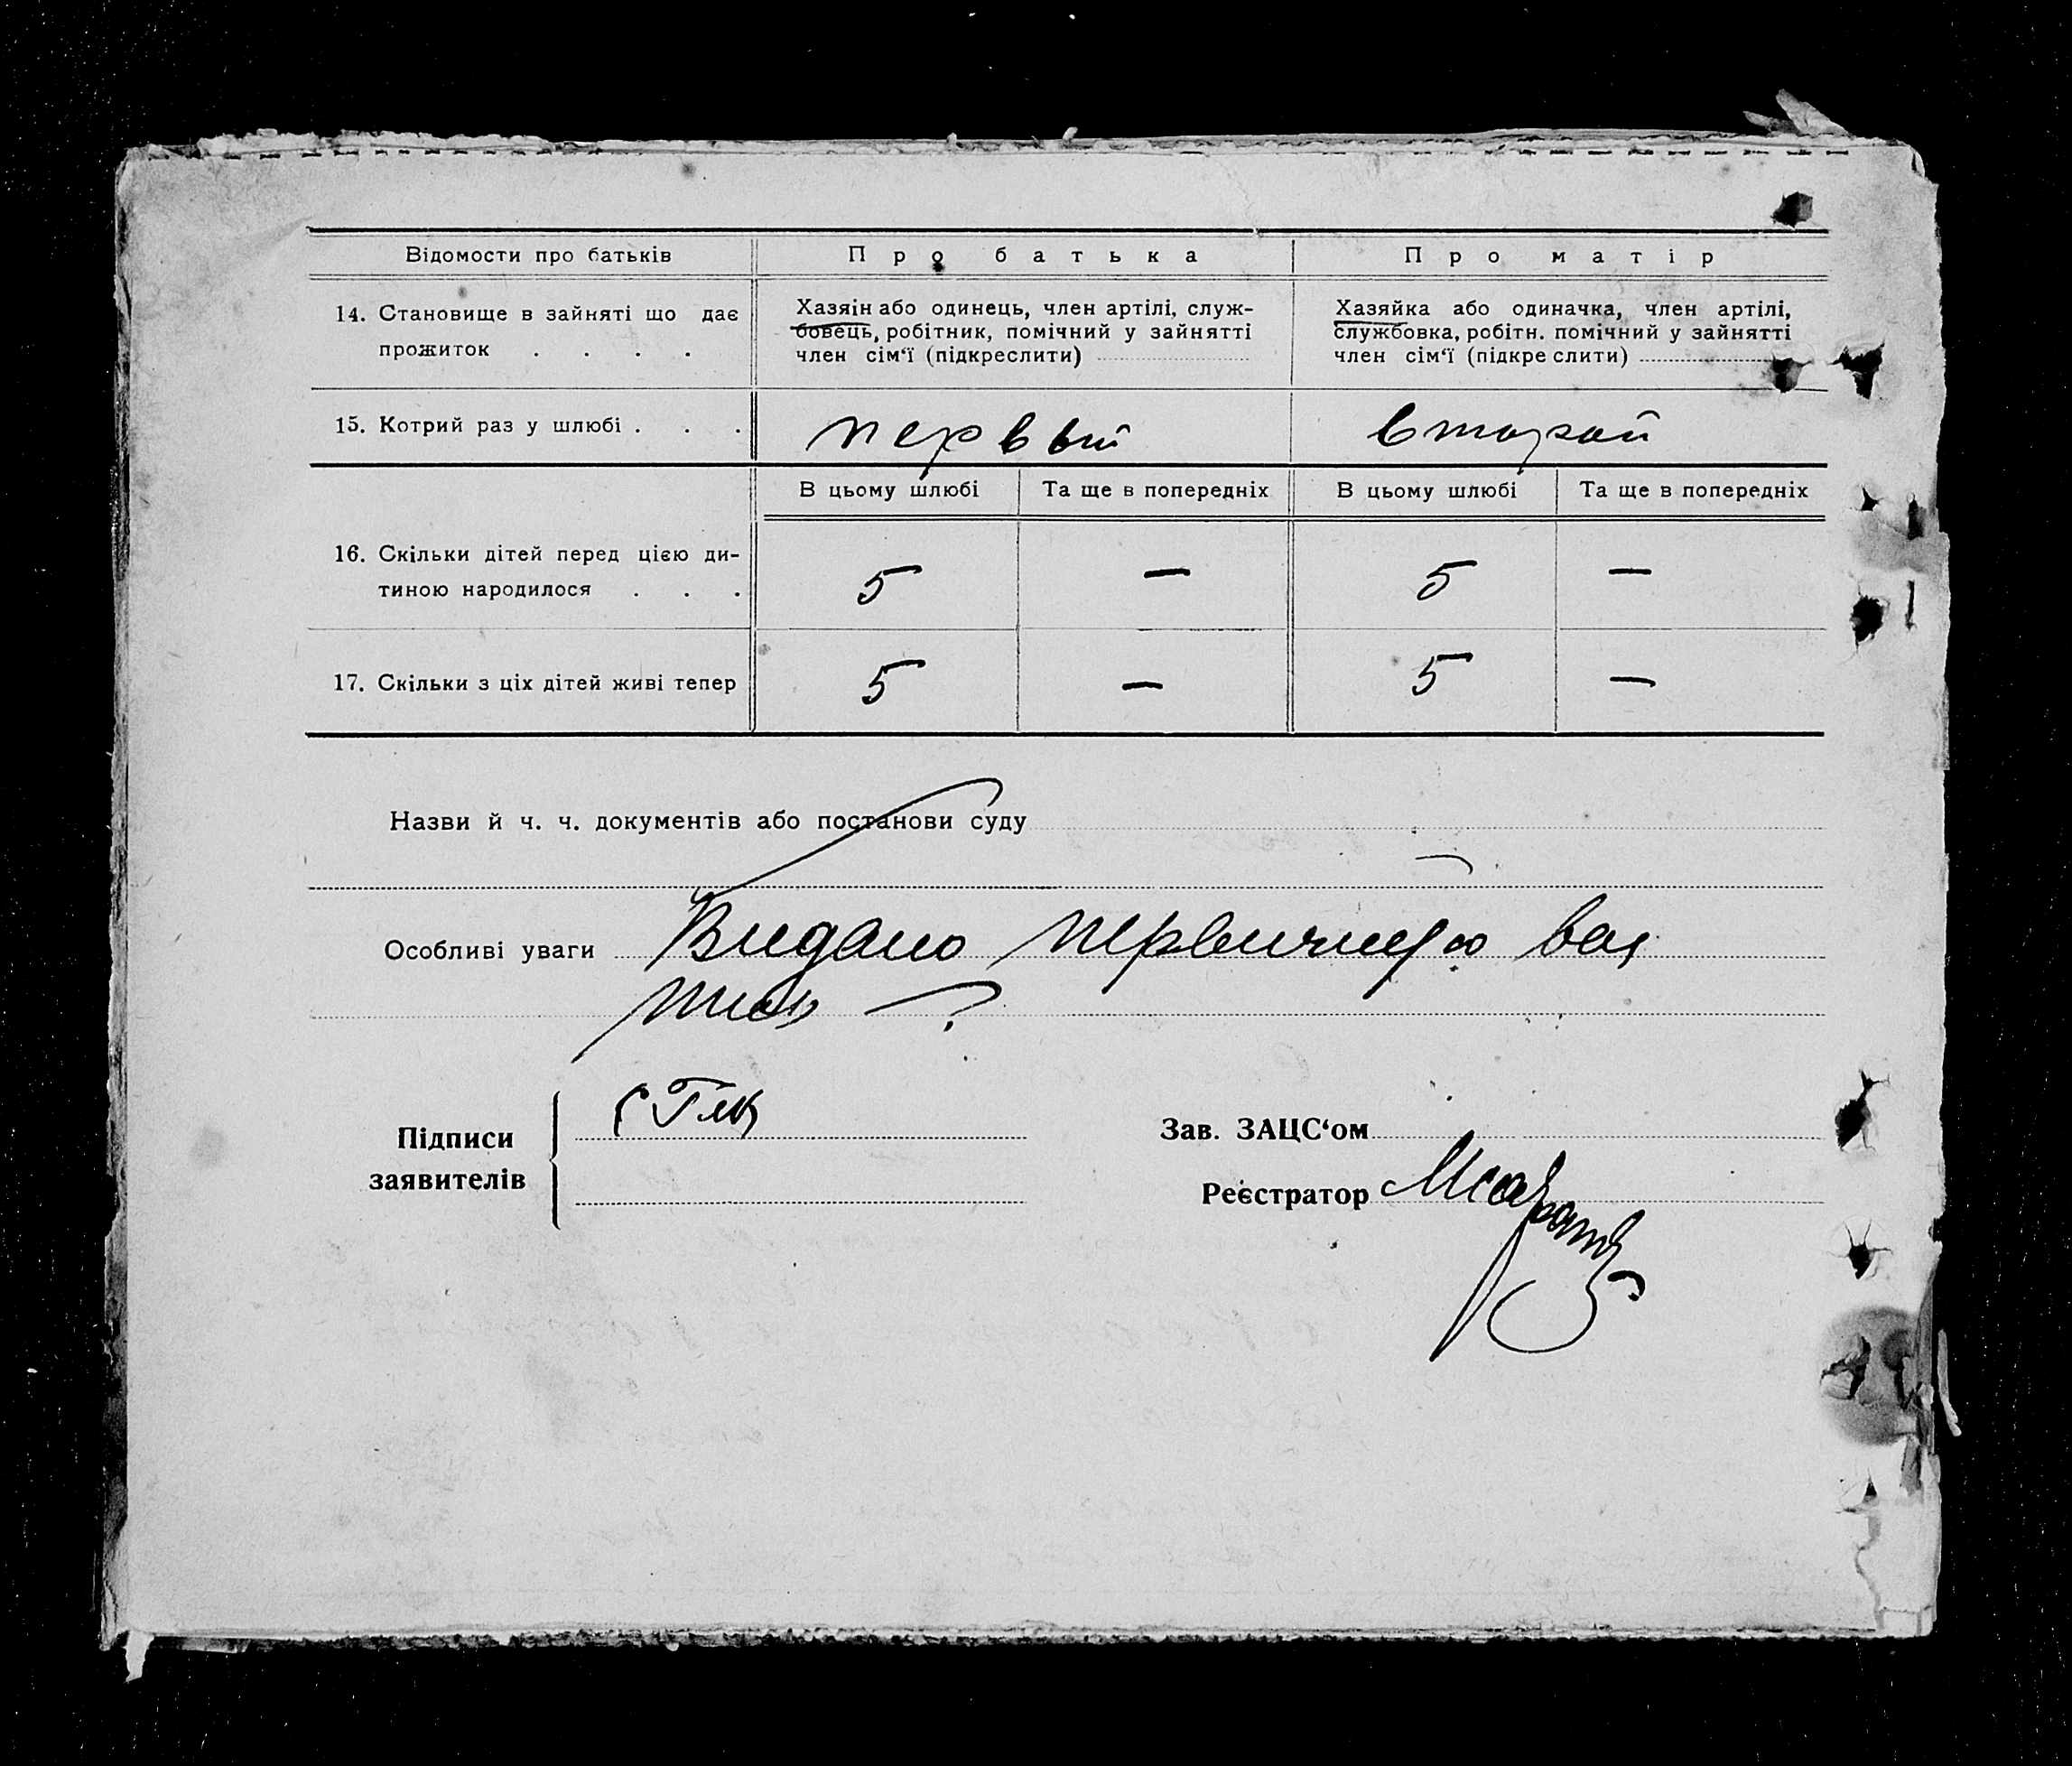 Відомости про батьків Про батька Про матір
14. Становище в зайняті що дає
прожиток . . . .
Хазяін або одинець, член артілі, служ-
бовець, робітник, помічний у зайнятті
член сім‘ї (підкреслити)
Хазяйка або одиначка, член артілі,
службовка, робітн. помічний у зайнятті
член сім‘ї (підкреслити)
15. Котрий раз у шлюбі . . . первый второй
В цьому шлюбі Та ще в попередніх В цьому шлюбі Та ще в попередніх
16. Скільки дітей перед цією ди-
тиною народилося . . . 5 — 5 —
17. Скільки з ціх дітей живі тепер 5 — 5 —
Назви й ч. ч. документів або постанови суду
Особливі уваги Видано первичную
Підписи
заявителів
Зав. ЗАЦС‘ом
Реєстратор